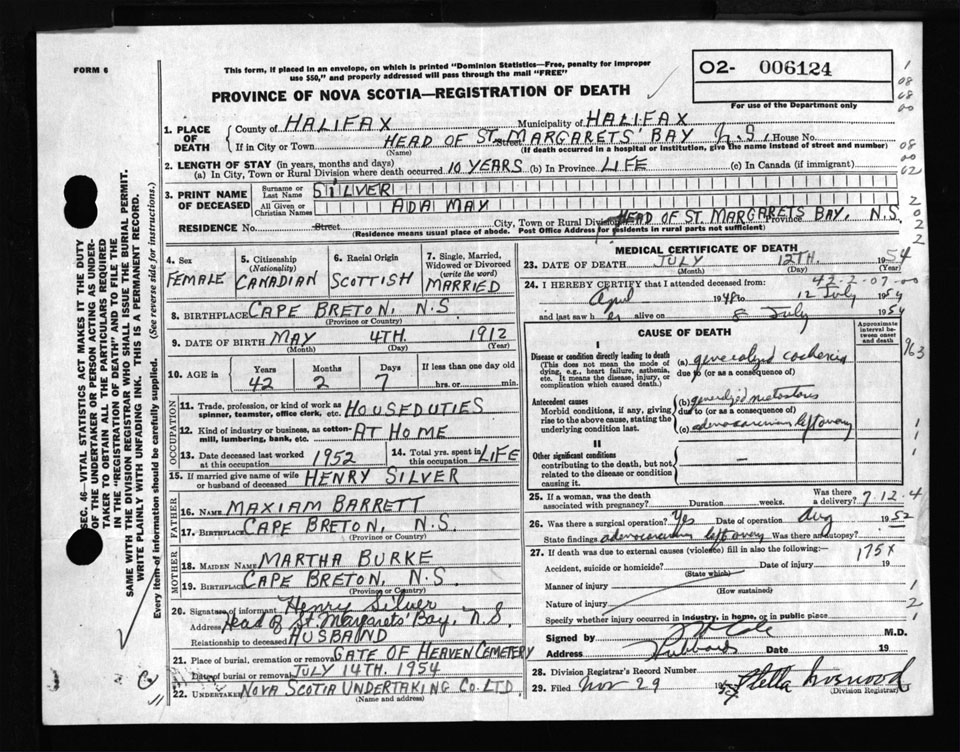 FORM 6
This form, if placed in an envelope, on which is printed "Dominion Statistics—Free, penalty for improper
use $50," and properly addressed will pass through the mail "FREE"
PROVINCE OF NOVA SCOTIA—REGISTRATION OF DEATH
O2- 006124
For use of the Department only
1. PLACE OF DEATH
County of HALIFAX Municipality of HALIFAX
If in City or Town HEAD OF ST. MARGARETS' BAY N.S. Street House No.
(Name) (If death occurred in a hospital or institution, give the name instead of street and number)
2. LENGTH OF STAY (in years, months and days)
(a) In City, Town or Rural Division where death occurred 10 YEARS (b) In Province LIFE (c) In Canada (if immigrant)
3. PRINT NAME OF DECEASED
Surname or Last Name SILVER
All Given or Christian Names ADA MAY
RESIDENCE No. Street City, Town or Rural Division HEAD OF ST. MARGARETS BAY. Province N.S.
(Residence means usual place of abode. Post Office Address for residents in rural parts not sufficient)
4. Sex FEMALE
5. Citizenship (Nationality) CANADIAN
6. Racial Origin SCOTTISH
7. Single, Married, Widowed or Divorced (write the word) MARRIED
8. BIRTHPLACE CAPE BRETON, N.S.
(Province or Country)
9. DATE OF BIRTH MAY 4TH. 1912
(Month) (Day) (Year)
10. AGE in Years Months Days If less than one day old
42 2 7 hrs. or min.
OCCUPATION
11. Trade, profession, or kind of work as spinner, teamster, office clerk, etc. HOUSEDUTIES
12. Kind of industry or business, as cotton-mill, lumbering, bank, etc. AT HOME
13. Date deceased last worked at this occupation 1952
14. Total yrs. spent in this occupation LIFE
15. If married give name of wife or husband of deceased HENRY SILVER
FATHER
16. NAME MAXIAM BARRETT
17. BIRTHPLACE CAPE BRETON, N.S.
(Province or Country)
MOTHER
18. MAIDEN NAME MARTHA BURKE
19. BIRTHPLACE CAPE BRETON, N.S.
(Province or Country)
20. Signature of informant Henry Silver
Address Head of St. Margarets' Bay, N.S.
Relationship to deceased HUSBAND
21. Place of burial, cremation or removal GATE OF HEAVEN CEMETERY
Date of burial or removal JULY 14TH. 1954
22. UNDERTAKER NOVA SCOTIA UNDERTAKING CO. LTD.
(Name and address)
MEDICAL CERTIFICATE OF DEATH
23. DATE OF DEATH JULY 12TH. 1954
(Month) (Day) (Year)
24. I HEREBY CERTIFY that I attended deceased from: 42-2-07-00
April 1948 to 12 July 1954
and last saw her alive on 8 July 1954
CAUSE OF DEATH
Approximate interval between onset and death
I
Disease or condition directly leading to death
(This does not mean the mode of dying, e.g., heart failure, asthenia, etc. It means the disease, injury, or complication which caused death.)
(a) generalized cachexia
due to (or as a consequence of)
Antecedent causes
Morbid conditions, if any, giving rise to the above cause, stating the underlying condition last.
(b) generalized metastasis
due to (or as a consequence of)
(c) adenocarcinoma left ovary
II
Other significant conditions
contributing to the death, but not related to the disease or condition causing it.
25. If a woman, was the death associated with pregnancy? Duration weeks. Was there a delivery? 7.12.4
26. Was there a surgical operation? Yes Date of operation Aug 1952
State findings adenocarcinoma left ovary Was there an autopsy?
27. If death was due to external causes (violence) fill in also the following:— 175X
Accident, suicide or homicide? Date of injury 19
(State which)
Manner of injury
(How sustained)
Nature of injury
Specify whether injury occurred in industry, in home, or in public place
Signed by M.D.
Address Hubbards Date 19
28. Division Registrar's Record Number
29. Filed Nov 29 19 Stella
(Division Registrar)
SEC. 46—VITAL STATISTICS ACT MAKES IT THE DUTY
OF THE UNDERTAKER OR PERSON ACTING AS UNDER-
TAKER TO OBTAIN ALL THE PARTICULARS REQUIRED
IN THE "REGISTRATION OF DEATH" AND TO FILE THE
SAME WITH THE DIVISION REGISTRAR WHO SHALL ISSUE THE BURIAL PERMIT.
WRITE PLAINLY WITH UNFADING INK. THIS IS A PERMANENT RECORD.
Every item of information should be carefully supplied. (See reverse side for instructions.)
1
08
68
00
08
00
02
2
0
2
2
963
1
1
1
2
1